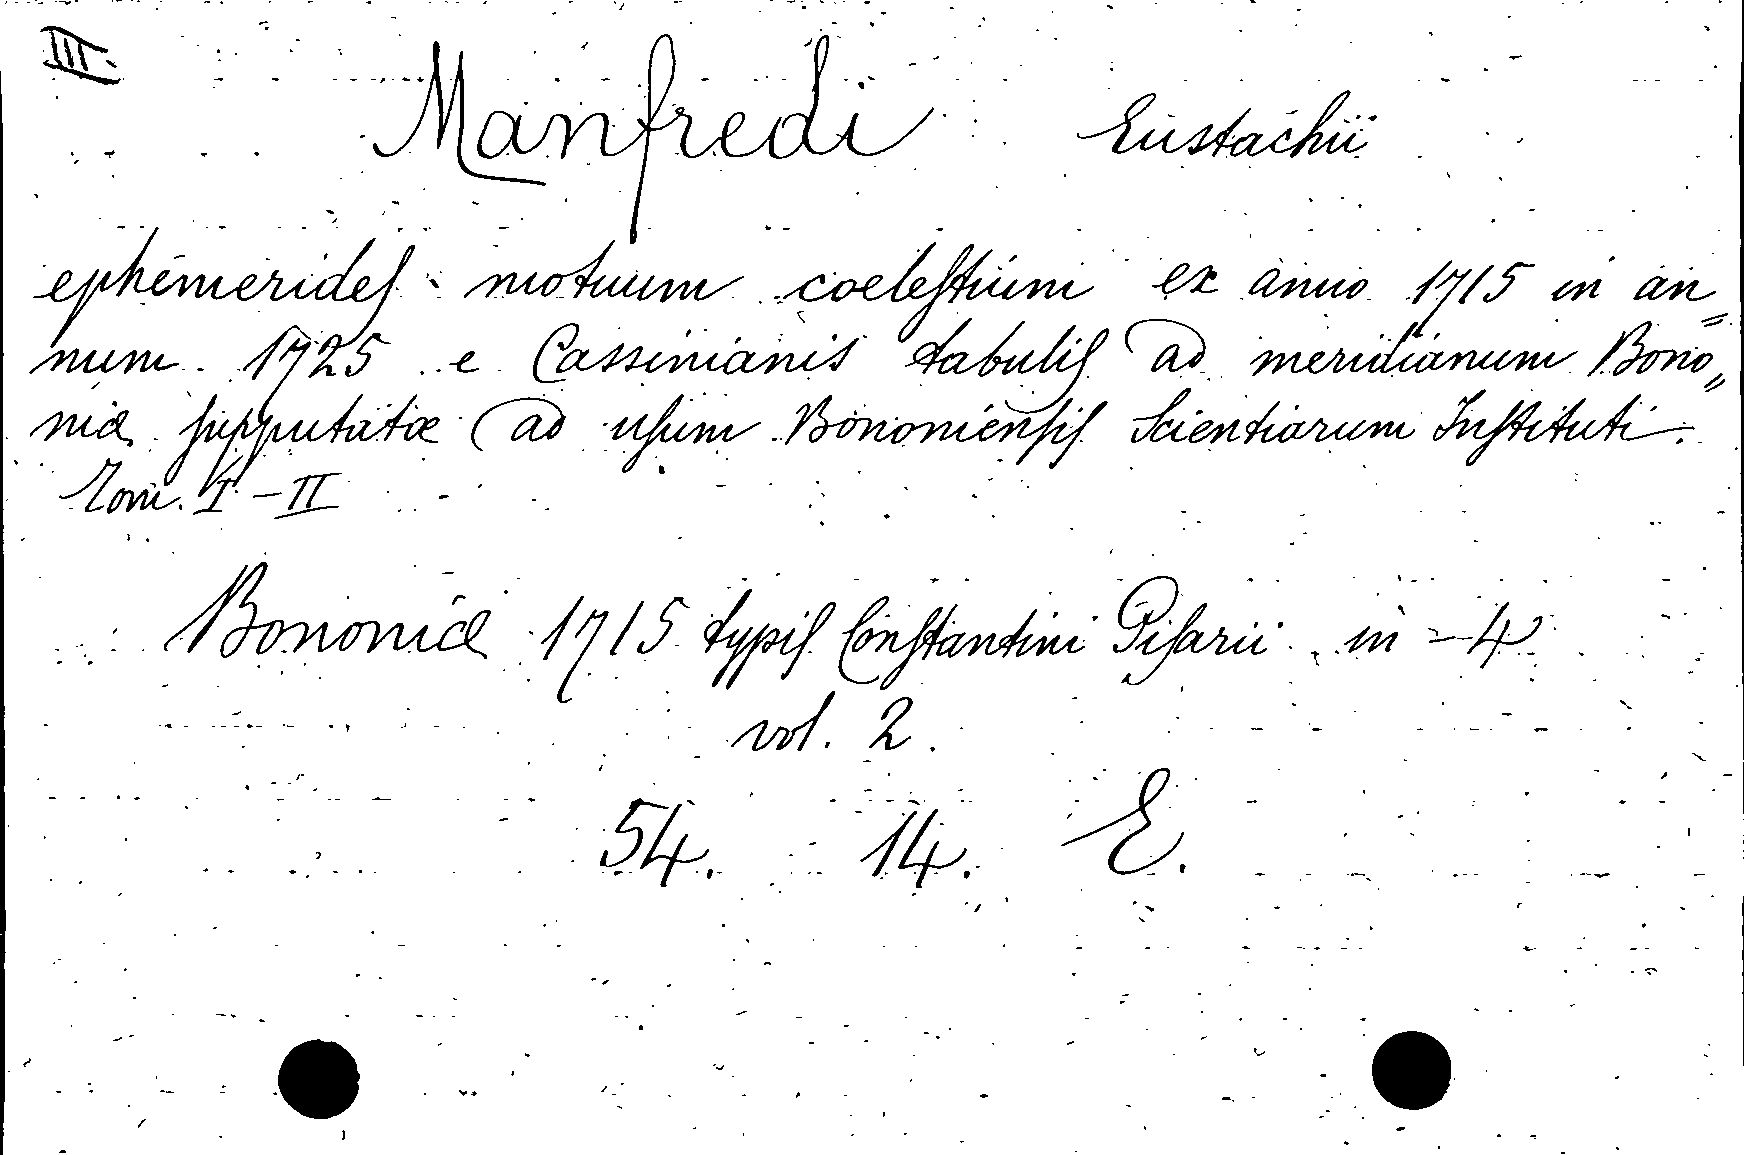 III.
Manfredi Eustachii
ephemerideſ motuum coeleſtium ex anno 1715 in an=
num 1725 e Cassinianis tabuliſ ad meridianum Bono=
niæ ſupputatæ ad uſum Bononienſiſ Scientiarum Inſtituti.
Tom. I - II
Bononiæ 1715 typiſ Conſtantini Piſarii in - 4
vol. 2.
54. 14. E.